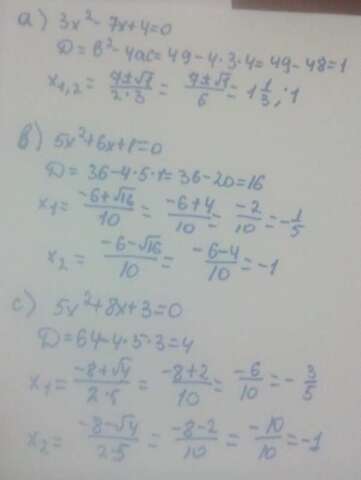 а) 3x² - 7x + 4 = 0
D = в² - 4ас = 49 - 4·3·4 = 49 - 48 = 1
x₁,₂ = (7±√1)/(2·3) = (7±√1)/6 = 1 1/3 ; 1
в) 5x² + 6x + 1 = 0
D = 36 - 4·5·1 = 36 - 20 = 16
x₁ = (-6+√16)/10 = (-6+4)/10 = (-2)/10 = -1/5
x₂ = (-6-√16)/10 = (-6-4)/10 = -1
с) 5x² + 8x + 3 = 0
D = 64 - 4·5·3 = 4
x₁ = (-8+√4)/(2·5) = (-8+2)/10 = (-6)/10 = -3/5
x₂ = (-8-√4)/(2·5) = (-8-2)/10 = (-10)/10 = -1